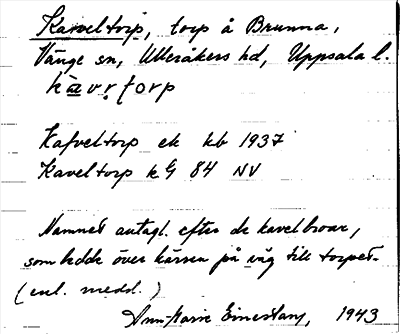 Kaveltorp, torp å Brunna,
Vänge sn, Ulleråkers hd, Uppsala l.
kavḷtorp
Kafveltorp ek kb 1937
Kaveltorp kG 84 NV
Namnet antagl. efter de kavelbroar,
som ledde över kärren på väg till torpet.
(enl. medd.)
Ann-Marie 1943